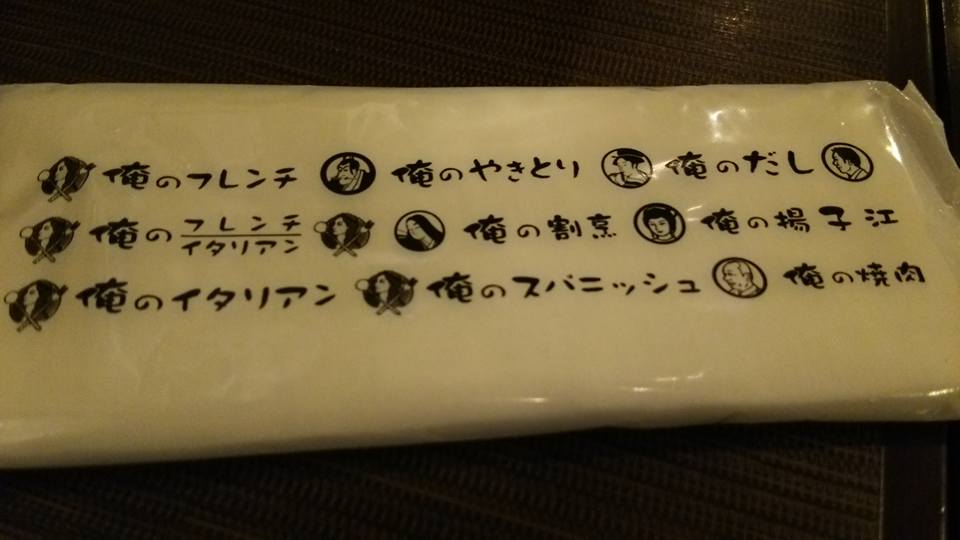 俺のフレンチ 俺のやきとり 俺のだし
俺の フレンチ イタリアン 俺の割烹 俺の揚子江
俺のイタリアン 俺のスパニッシュ 俺の焼肉